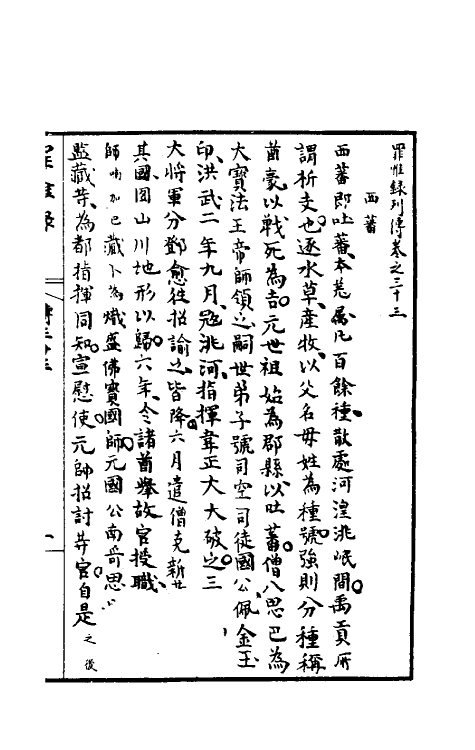 罪惟錄列傳卷之三十三
西蕃
西蕃即吐蕃本羌屬凡百餘種散處河湟洮岷間禹貢所
謂析支也逐水草產牧以父名母姓為種號強則分種稱
酋豪以戰死為吉元世祖始為郡縣以吐蕃僧八思巴為
大寶法王帝師領之嗣世弟子號司空司徒國公佩金玉
印洪武二年九月寇洮河指揮韋正大大破之三
大將軍分鄧愈往招諭之皆降六月遣僧克新等
其國圖山川地形以歸六年令諸酋舉故官授職
師喃加巴藏卜為熾盛佛寶國師元國公南哥思
監藏等為都指揮同知宣慰使元帥招討等官自是之後